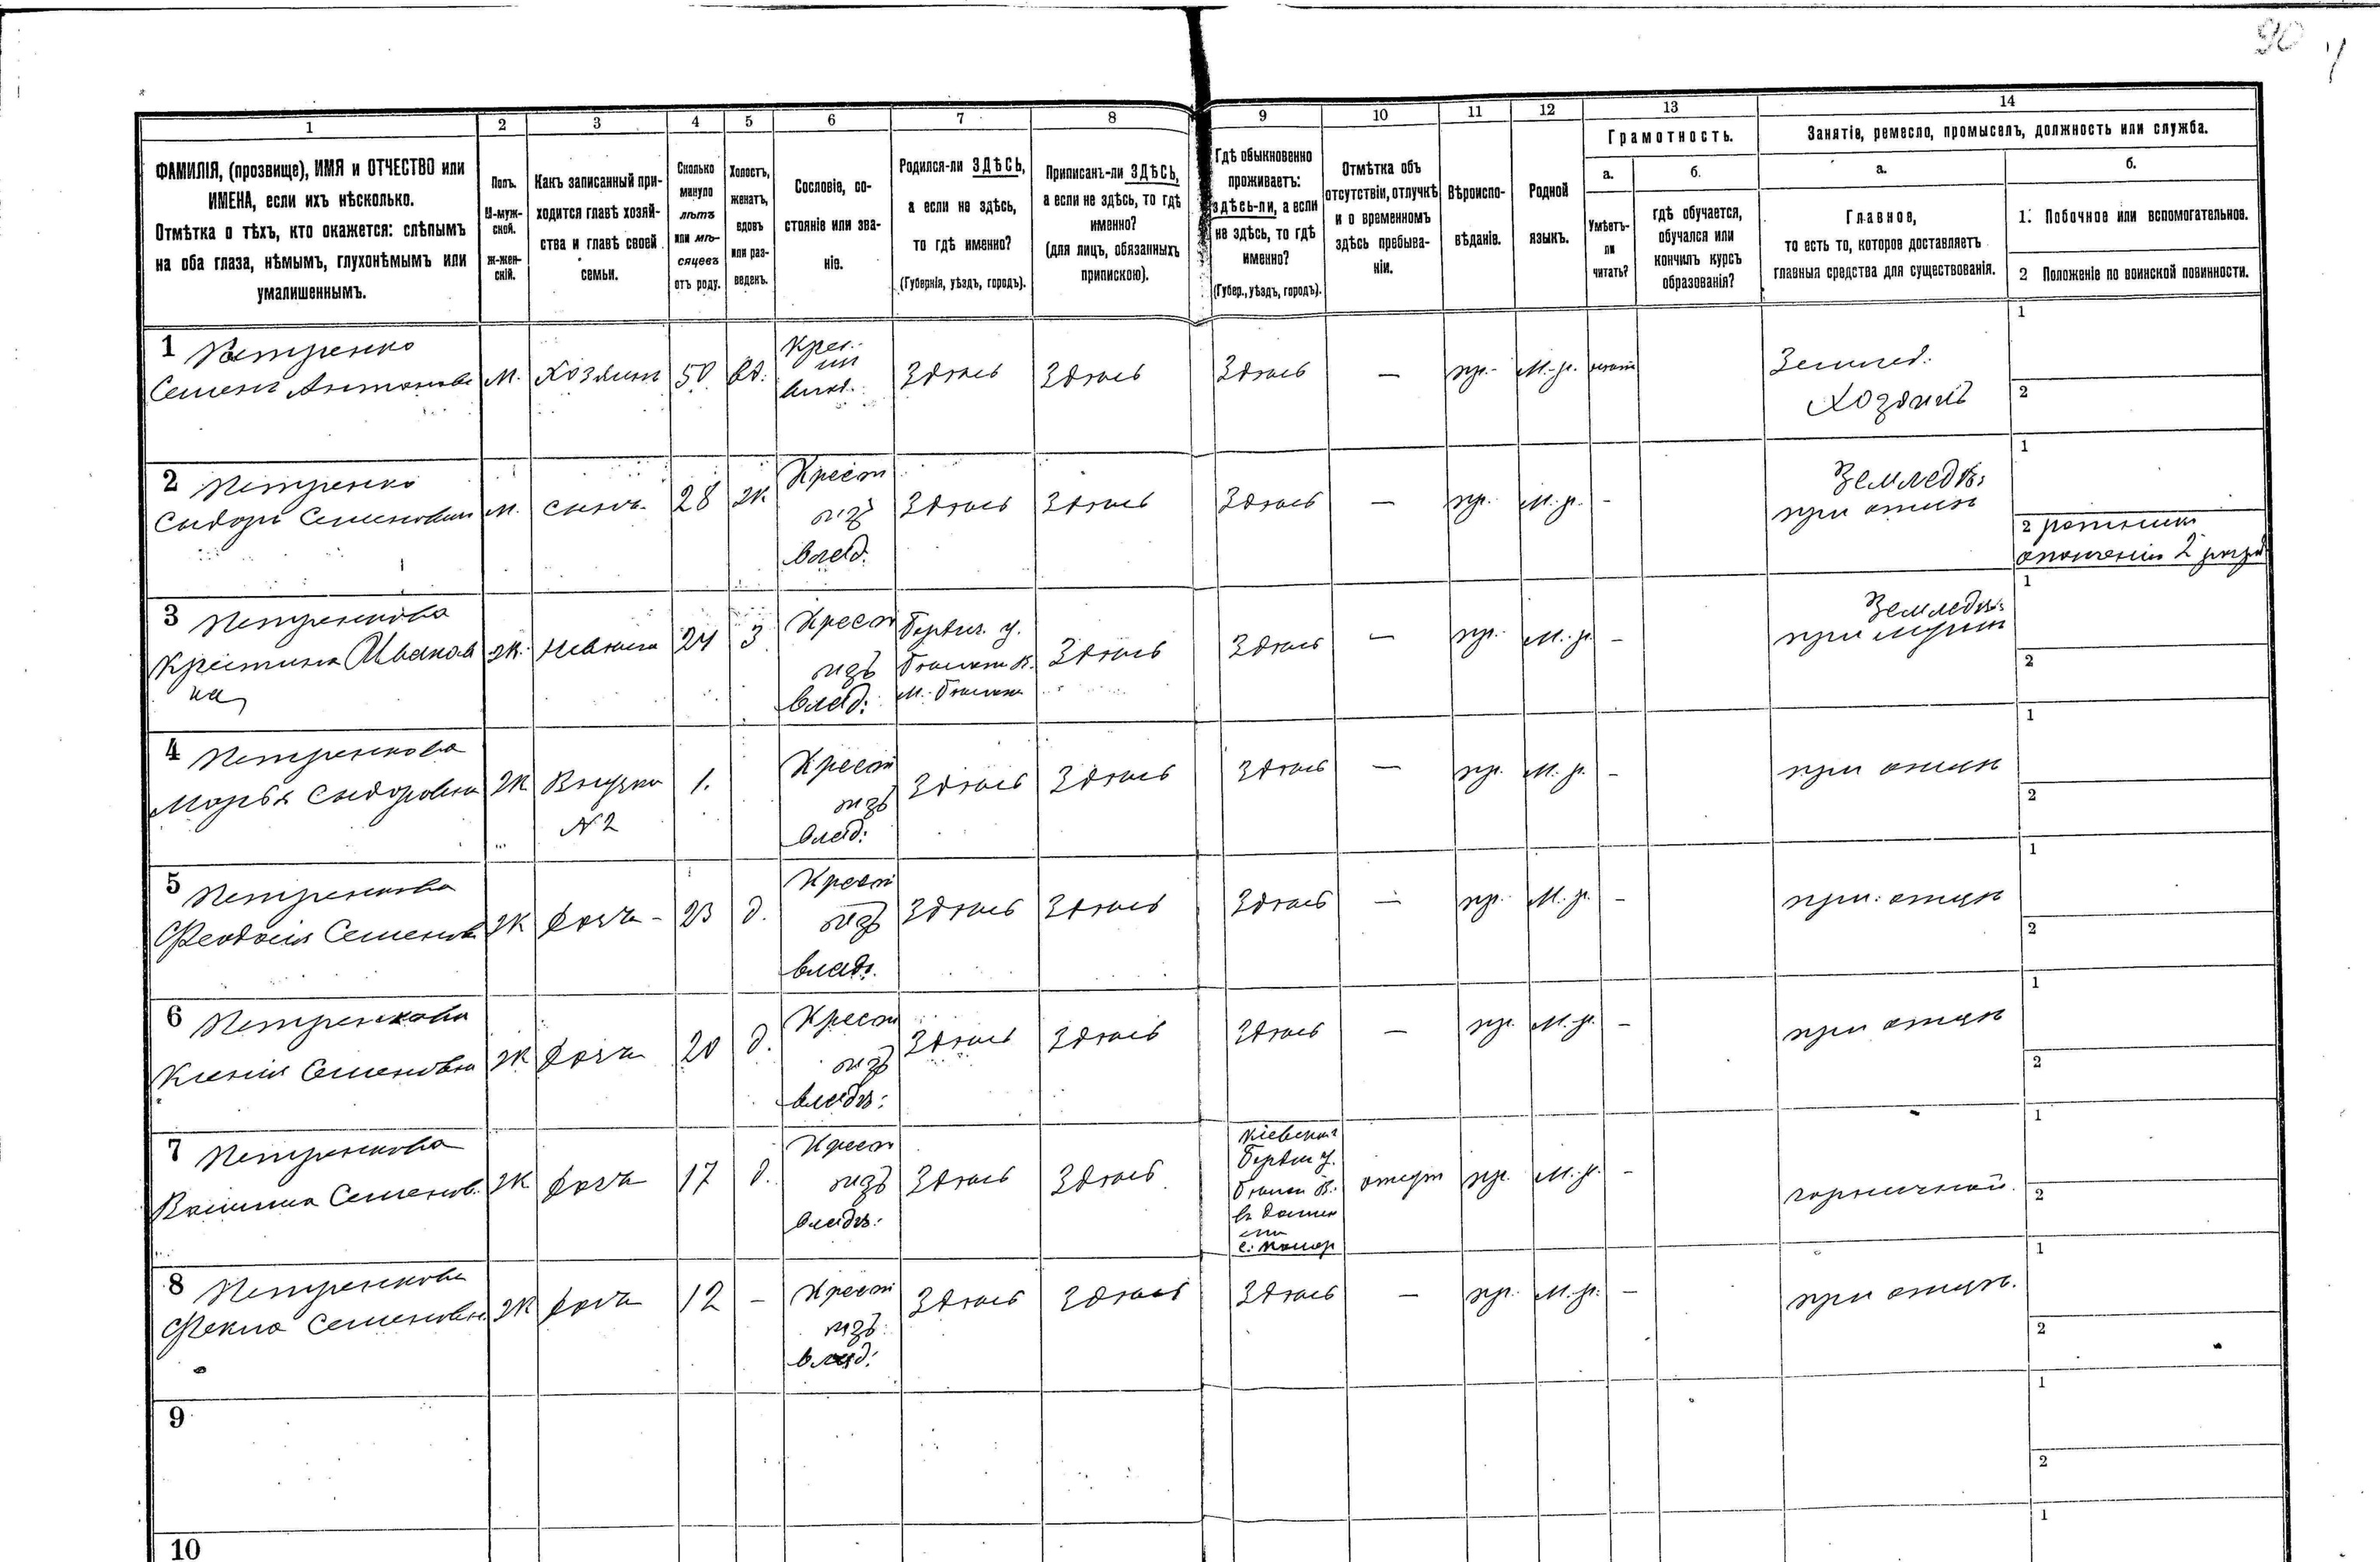 90
1
2
3
4
5
6
7
8
9
10
11
12
13
14
ФАМИЛІЯ, (прозвище), ИМЯ и ОТЧЕСТВО или
ИМЕНА, если ихъ нѣсколько.
Отмѣтка о тѣхъ, кто окажется: слѣпымъ
на оба глаза, нѣмымъ, глухонѣмымъ или
умалишеннымъ.
Полъ.
М-муж-
ской.
ж-жен-
скій.
Какъ записанный при-
ходится главѣ хозяй-
ства и главѣ своей
семьи.
Сколько
минуло
лѣтъ
или мѣ-
сяцевъ
отъ роду.
Холостъ,
женатъ,
вдовъ
или раз-
веденъ.
Сословіе, со-
стояніе или зва-
ніе.
Родился-ли ЗДѢСЬ,
а если не здѣсь,
то гдѣ именно?
(Губернія, уѣздъ, городъ).
Приписанъ-ли ЗДѢСЬ,
а если не здѣсь, то гдѣ
именно?
(для лицъ, обязанныхъ
припискою).
Гдѣ обыкновенно
проживаетъ:
здѣсь-ли, а если
не здѣсь, то гдѣ
именно?
(Губер., уѣздъ, городъ).
Отмѣтка объ
отсутствіи, отлучкѣ
и о временномъ
здѣсь пребыва-
ніи.
Вѣроиспо-
вѣданіе.
Родной
языкъ.
Грамотность.
а.
Умѣетъ-
ли
читать?
б.
гдѣ обучается,
обучался или
кончилъ курсъ
образованія?
Занятіе, ремесло, промыселъ, должность или служба.
а.
Главное,
то есть то, которое доставляетъ
главныя средства для существованія.
б.
1. Побочное или вспомогательное.
2 Положеніе по воинской повинности.
1 Петренко
Семенъ Антонов
М. Хозяинъ 50 вд.
Крес.
из
влад.
Здѣсь Здѣсь Здѣсь — пр. М.-р.
Землед.
Хозяинъ
1
2
2 Петренко
Сидоръ Семенович
М. сынъ 28 ж
Крест
изъ
влад.
Здѣсь Здѣсь Здѣсь — пр. М.р. -
Земледѣ:
при отцѣ
1
2 ратникъ
ополченія 2 разр
3 Петренкова
Кристина Иванов
на
ж. Невѣстка 24 З
Крест
изъ
влад:
Бердич. у.
Здѣсь Здѣсь — пр. М.р. -
Земледѣ:
при мужѣ
1
2
4 Петренкова
Марья Сидоровна
ж Внучка
№2
1.
Крест
изъ
влад:
Здѣсь Здѣсь Здѣсь — пр. М.р. -
при отцѣ
1
2
5 Петренкова
Феодосія Семенов
ж дочь - 23 д.
Крест
изъ
влад.
Здѣсь Здѣсь Здѣсь — пр. М.р. -
при отцѣ
1
2
6 Петренкова
Ксенія Семеновна
ж дочь 20 д.
Крест
изъ
владѣ:
Здѣсь Здѣсь Здѣсь — пр. М.р. -
при отцѣ
1
2
7 Петренкова
Семенов.
ж дочь 17 д.
Крест
изъ
владѣ:
Здѣсь Здѣсь
Кіевской
Бердич у.
отсут пр. М.р. -
горничной.
1
2
8 Петренкова
Фекла Семеновн
ж дочь 12 -
Крест
изъ
влад:
Здѣсь Здѣсь Здѣсь — пр. М.р. -
при отцѣ.
1
2
9
1
2
10
1